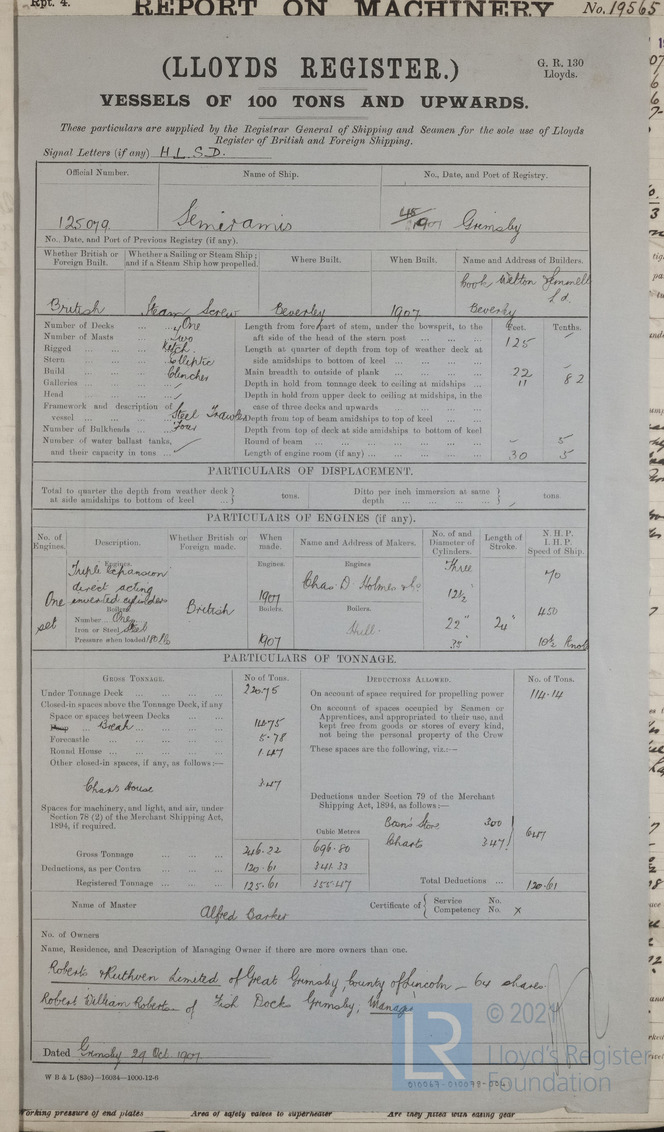 Rpt. 4. REPORT ON MACHINERY No. 19565
(LLOYDS REGISTER.)
G. R. 130
Lloyds.
VESSELS OF 100 TONS AND UPWARDS.
These particulars are supplied by the Registrar General of Shipping and Seamen for the sole use of Lloyds
Register of British and Foreign Shipping.
Signal Letters (if any) H.L.S.D.
Official Number. Name of Ship. No., Date, and Port of Registry.
125079. Semiramis 45/1907 Grimsby
No., Date, and Port of Previous Registry (if any).
Whether British or Foreign Built. Whether a Sailing or Steam Ship; and if a Steam Ship how propelled. Where Built. When Built. Name and Address of Builders.
Cook Welton Gemmell
Ld.
British Steam Screw Beverley 1907 Beverley
Number of Decks ... ... One
Number of Masts ... Two
Rigged ... ... ... Ketch.
Stern ... ... ... Elliptic
Build ... ... ... Clincher
Galleries ... ...
Head ... ... ...
Framework and description of vessel ... ... ... Steel Trawler
Number of Bulkheads ... ... Four
Number of water ballast tanks, and their capacity in tons ...
Feet. Tenths.
Length from forepart of stem, under the bowsprit, to the aft side of the head of the stern post ... 125
Length at quarter of depth from top of weather deck at side amidships to bottom of keel ...
Main breadth to outside of plank ... 22
Depth in hold from tonnage deck to ceiling at midships ... 11 82
Depth in hold from upper deck to ceiling at midships, in the case of three decks and upwards
Depth from top of beam amidships to top of keel ...
Depth from top of deck at side amidships to bottom of keel
Round of beam ... – 5
Length of engine room (if any) ... 30 5
PARTICULARS OF DISPLACEMENT.
Total to quarter the depth from weather deck at side amidships to bottom of keel ... tons. Ditto per inch immersion at same depth ... tons
PARTICULARS OF ENGINES (if any).
No. of Engines. Description. Whether British or Foreign made. When made. Name and Address of Makers. No. of and Diameter of Cylinders. Length of Stroke. N. H. P. I. H. P. Speed of Ship.
Engines. Engines. Engines
One set
Triple Expansion
direct acting
inverted cylinders
British
1907
Chas D Holmes & Co
Three
12½"
22"
35"
24"
70
450
10½ Knots
Boilers. Boilers. Boilers.
Number One
Iron or Steel Steel
Pressure when loaded 180 lb
1907
Hull.
PARTICULARS OF TONNAGE.
GROSS TONNAGE. No of Tons. DEDUCTIONS ALLOWED. No. of Tons.
Under Tonnage Deck ... 220.75
Closed-in spaces above the Tonnage Deck, if any
Space or spaces between Decks ...
Break ... 14.75
Forecastle ... 5.78
Round House ... 1.47
Other closed-in spaces, if any, as follows:—
Chart House 3.47
Spaces for machinery, and light, and air, under Section 78 (2) of the Merchant Shipping Act, 1894, if required.
On account of space required for propelling power 114.14
On account of spaces occupied by Seamen or Apprentices, and appropriated to their use, and kept free from goods or stores of every kind, not being the personal property of the Crew
These spaces are the following, viz.:—
Deductions under Section 79 of the Merchant Shipping Act, 1894, as follows:—
Bosn's Store 300
Charts 347
647
Cubic Metres
Gross Tonnage ... 246.22 696.80
Deductions, as per Contra ... 120.61 341.33
Registered Tonnage ... 125.61 355.47
Total Deductions ... 120.61
Name of Master Alfred Barker
Certificate of Service No.
Competency No. X
No. of Owners
Name, Residence, and Description of Managing Owner if there are more owners than one.
Roberts & Ruthven Limited of Great Grimsby, County of Lincoln – 64 shares
Robert William Roberts of Fish Dock Grimsby, Manager
Dated Grimsby 29 Oct. 1907
W B & L (830)—16034—1000-12-6
LR
© 202
Lloyd's Register
Foundation
010067-010078-006
Working pressure of end plates Area of safety valves to superheater Are they fitted with easing gear